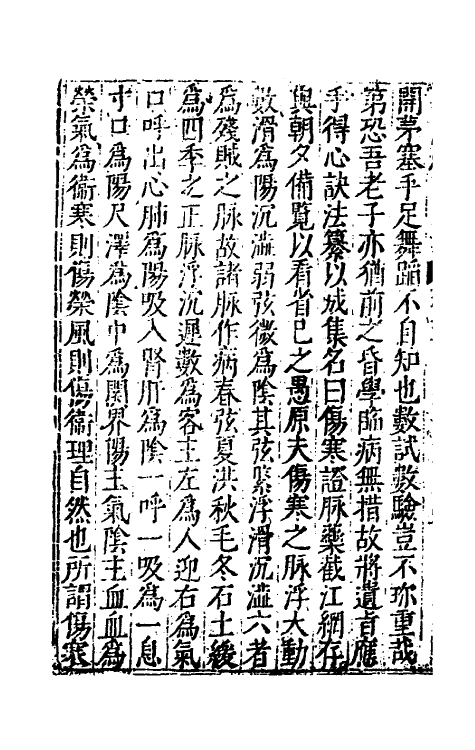 開茅塞乎足舞蹈不自知也數試數驗豈不珎重哉
第恐吾老子亦猶前之昏學臨病無措故將遺旨應
手得心訣法纂以成集名曰傷寒證脉藥截江網存
與朝夕備覽以看省巳之愚原夫傷寒之脉浮大動
數滑爲陽沉澁弱弦微爲陰其弦緊浮滑沉澁六者
爲殘賊之脉故諸脉作病春弦夏洪秋毛冬石土緩
爲四季之正脉浮沉遲數爲客主左爲人迎右爲氣
口呼出心肺爲陽吸入腎肝爲陰一呼一吸爲一息
寸口爲陽尺澤爲陰中爲關界陽主氣陰主血血爲
榮氣爲衞寒則傷榮風則傷衞理自然也所謂傷寒